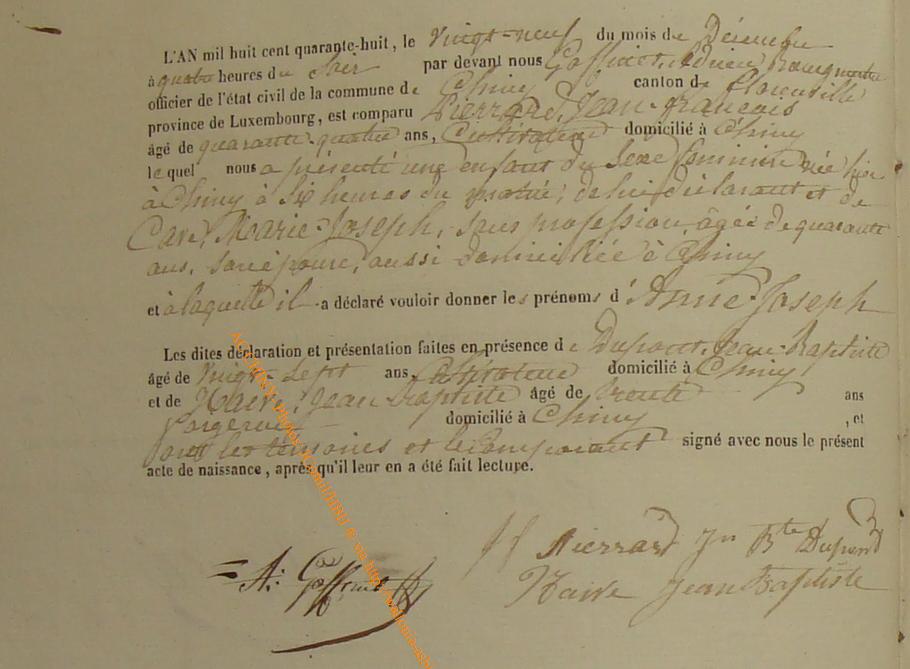 L'AN mil huit cent quarante-huit, le vingt-neuf du mois de Décembre
à quatre heures du Soir par devant nous Goffinet, Adrien, bourgmestre
officier de l'état civil de la commune de Chiny canton de florenville
province de Luxembourg, est comparu Pierrard, Jean-françois
âgé de quarante-quatre ans, Cultivateur domicilié à Chiny
lequel nous a présenté une enfant du Sexe féminin née hier
à Chiny à six heures du matin, de lui déclarant et de
Marie-Joseph, sans profession, âgée de quarante
ans, son épouse, aussi domiciliée à Chiny
et à laquelle il a déclaré vouloir donner les prénoms d'Anne-Joseph
Les dites déclaration et présentation faites en présence de Dupont, Jean-Baptiste
âgé de vingt-sept ans, Cultivateur domicilié à Chiny
et de Jean Baptiste âgé de trente ans
domicilié à Chiny, et
ont les témoins et le Comparant signé avec nous le présent
acte de naissance, après qu'il leur en a été fait lecture.
Jf Pierrard Jn Bte Dupont
A: Goffinet
Jean Baptiste